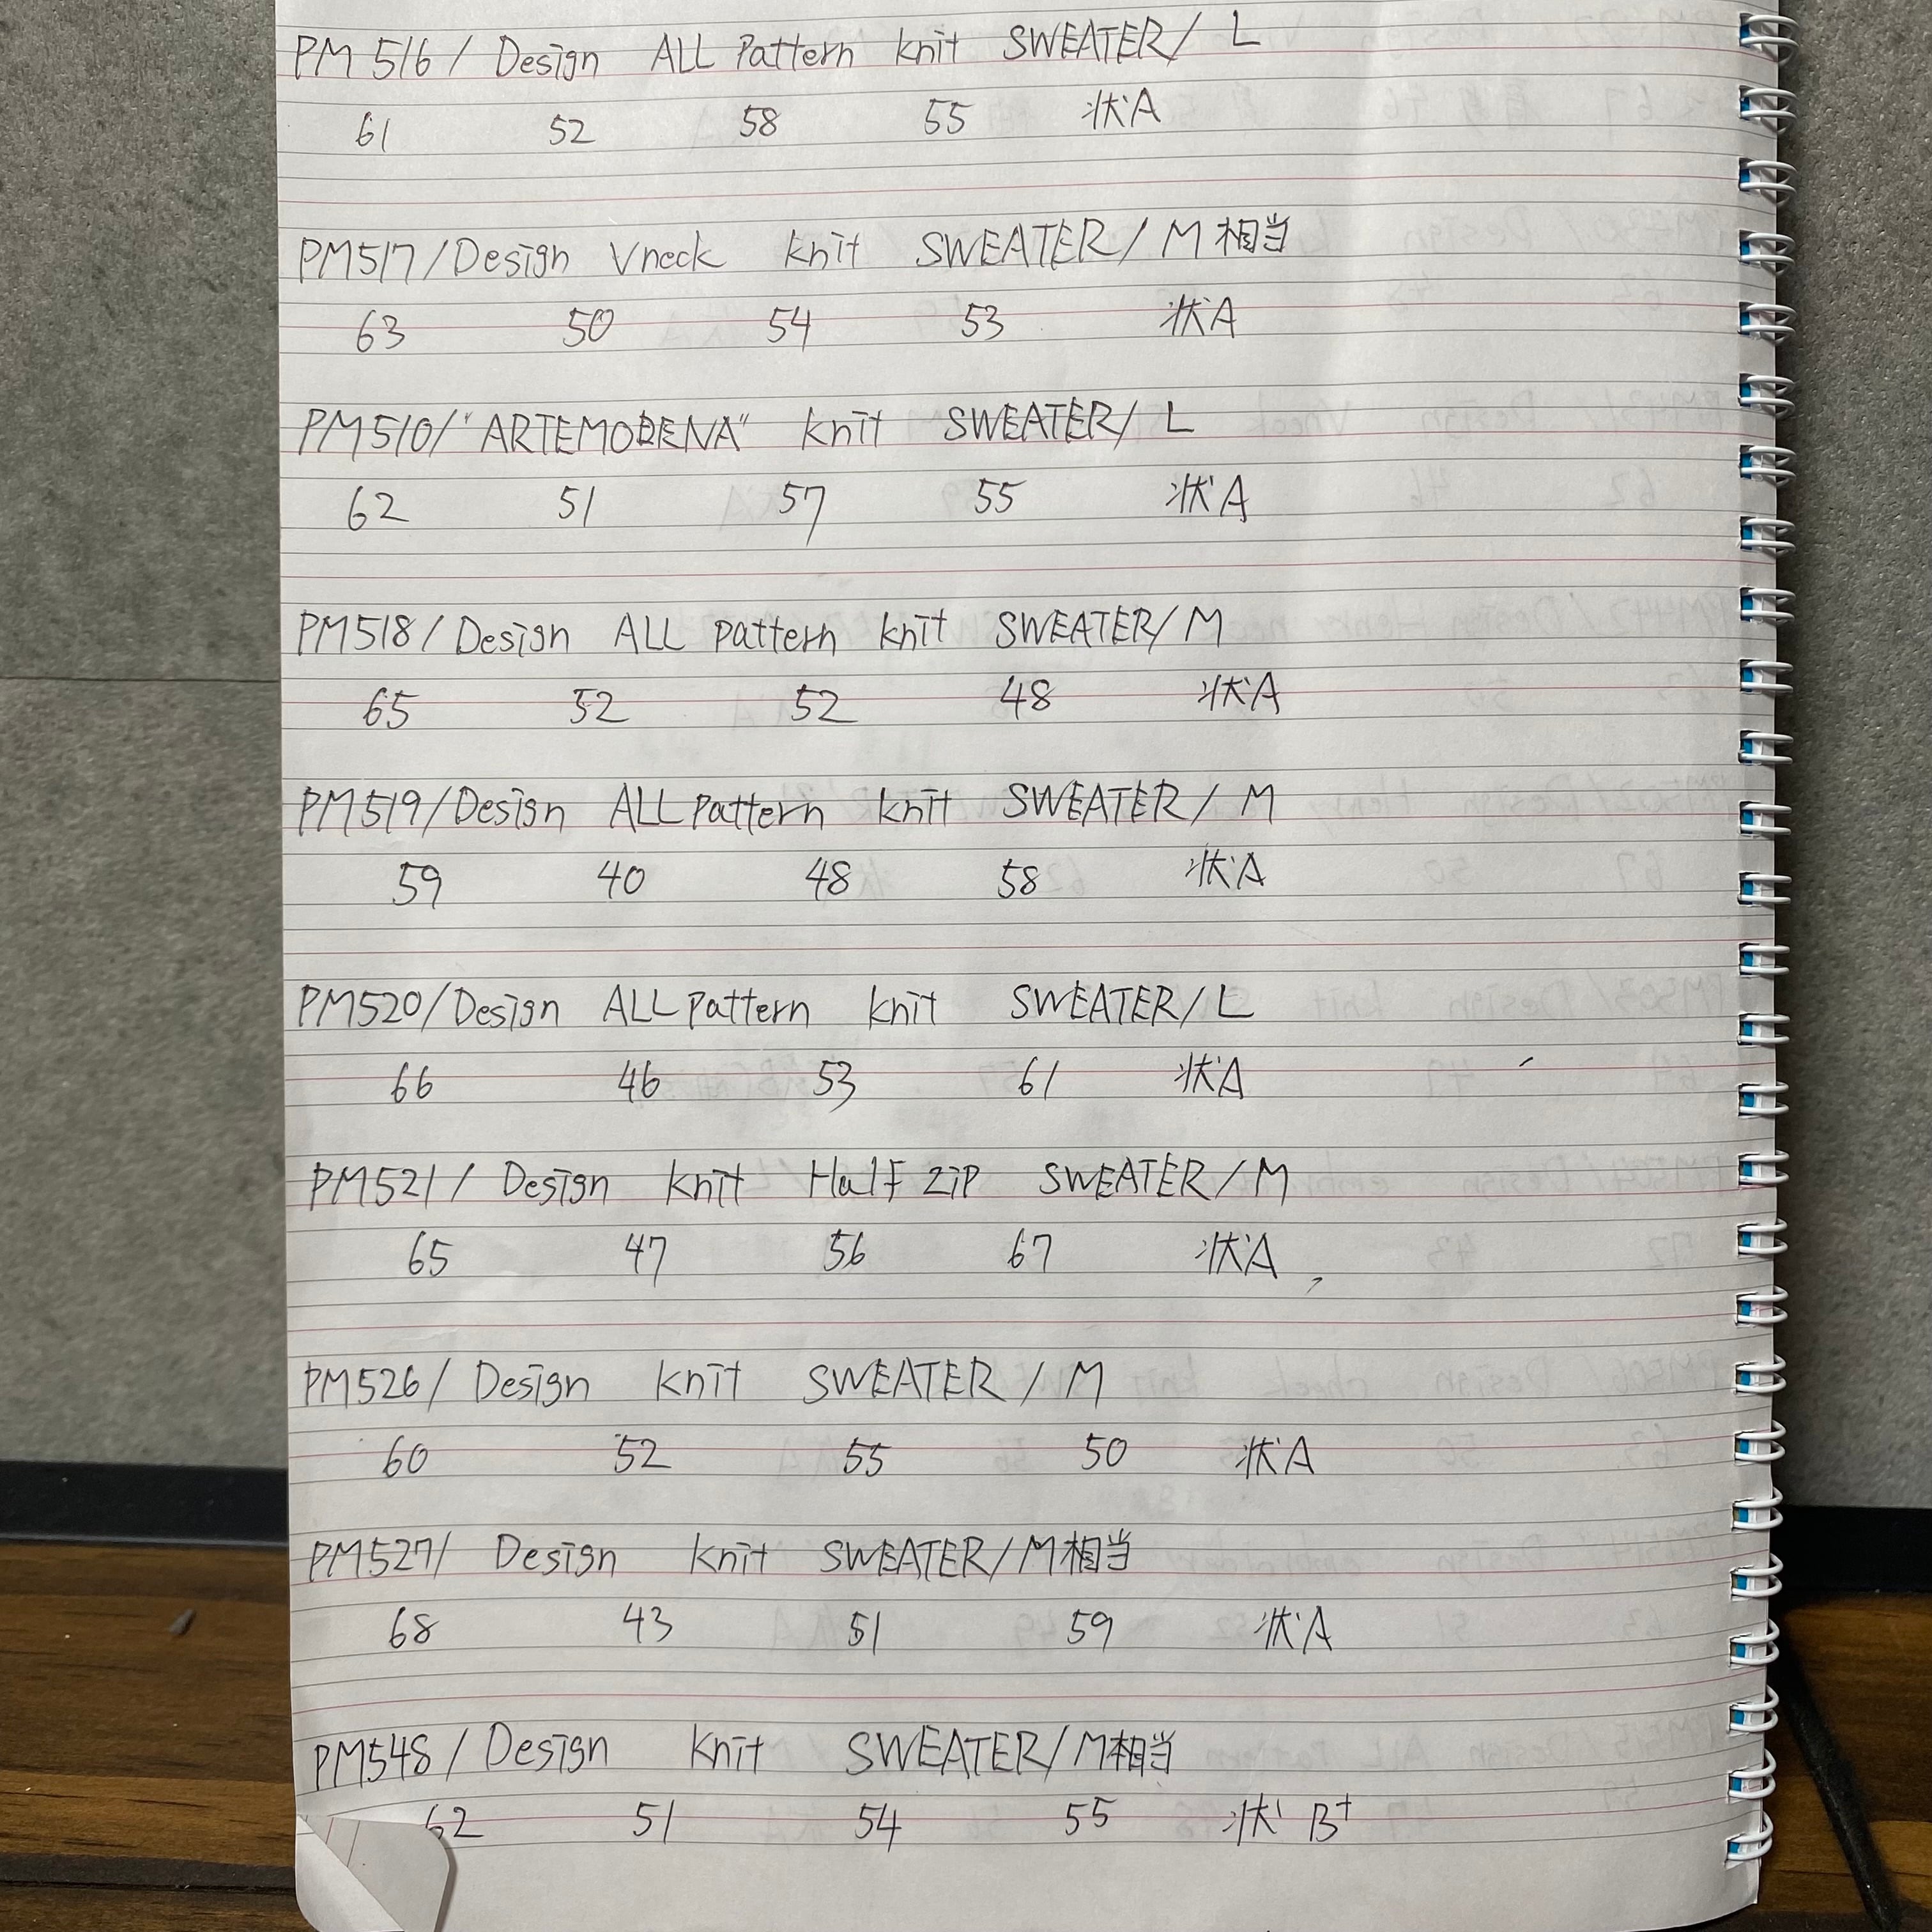 PM516/ Design ALL Pattern knit SWEATER/ L
61 52 58 55 状A
PM517/Design Vneck knit SWEATER/M相当
63 50 54 53 状A
PM510/"ARTEMORENA" knit SWEATER/ L
62 51 57 55 状A
PM518/Design ALL pattern knit SWEATER/M
65 52 52 48 状A
PM519/Design ALL pattern knit SWEATER/ M
59 40 48 58 状A
PM520/Design ALL pattern knit SWEATER/L
66 46 53 61 状A
PM521/ Design knit Half ZiP SWEATER/M
65 47 56 67 状A
PM526/ Design knit SWEATER/M
60 52 55 50 状A
PM527/ Design knit SWEATER/M相当
68 43 51 59 状A
PM548/Design knit SWEATER/M相当
62 51 54 55 状 B+